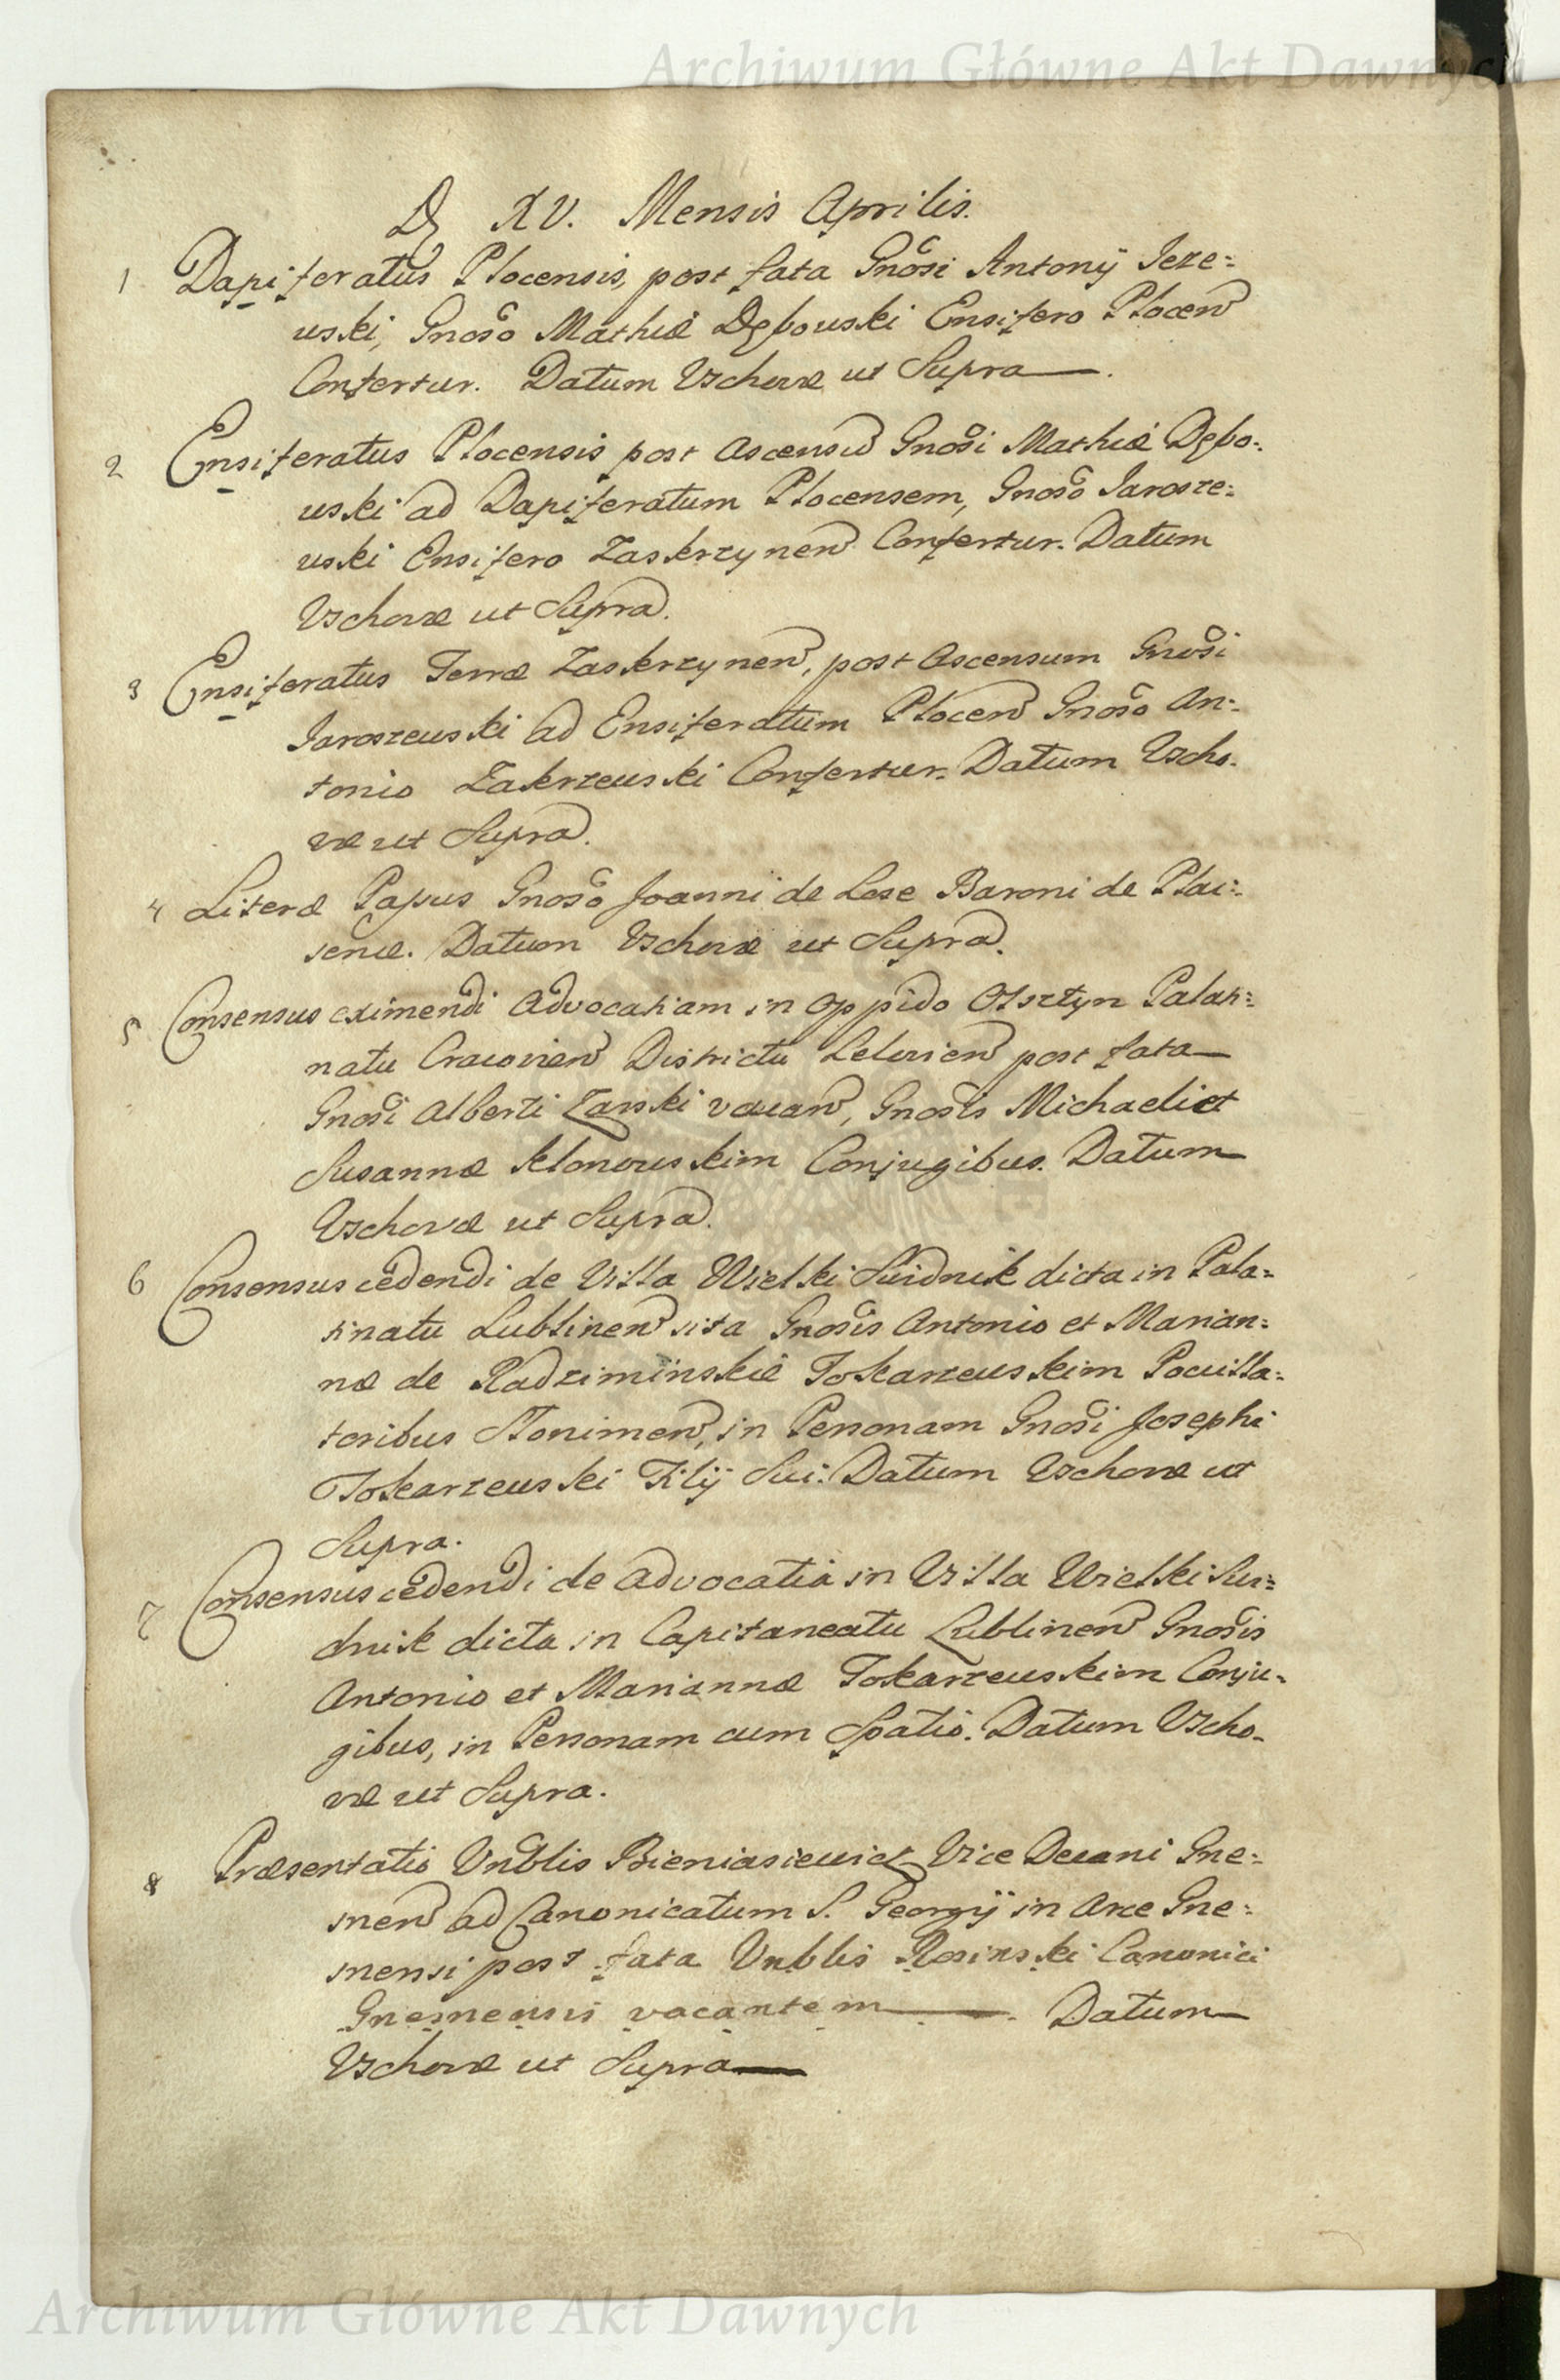 Archiwum Główne Akt Dawnych
D XV. Mensis Aprilis.
1 Dapiferatus Plocensis, post fata Gnosi Antonij Jeze=
wski, Gnoso Mathiæ Dębowski Ensifero Plocen
Confertur. Datum Vschovæ ut Supra.
2 Ensiferatus Plocensis post Ascensu Gnosi Mathiæ Dębo=
wski ad Dapiferatum Plocensem, Gnoso Jarosze=
wski Ensifero Zaskrzynen Confertur. Datum
Vschovæ ut Supra.
3 Ensiferatus Terræ Zaskrzynen, post Ascensum Gnosi
Jaroszewski ad Ensiferatum Plocen Gnoso An=
tonio Zakrzewski Confertur. Datum Vscho=
væ ut Supra.
4 Literæ Passus Gnoso Joanni de Lese Baroni de Plai=
sene. Datum Vschovæ ut Supra.
5 Consensus eximendi Advocatiam in Oppido Olsztyn Palati=
natu Cracovien Districtu Lelovien post fata
Gnosi Alberti Zarski vacan, Gnosis Michaeli et
Susannæ Klonowskim Conjugibus. Datum
Vschovæ ut Supra.
6 Consensus cedendi de Villa Wielki Swidnik dicta in Pala=
tinatu Lublinen sita Gnosis Antonio et Marian=
næ de Radziminskie Tokarzewskim Pocilla=
toribus Słonimen, in Personam Gnosi Josephi
Tokarzewski Filij Sui. Datum Vschovæ ut
Supra.
7 Consensus cedendi de Advocatia in Villa Wielki Swi=
dnik dicta in Capitaneatu Lublinen Gnosis
Antonio et Mariannæ Tokarzewskim Conju=
gibus, in Personam cum Spatio. Datum Vscho=
væ ut Supra.
8 Præsentatio Vnblis Bieniasiewicz Vice Decani Gne=
snen ad Canonicatum S. Georgij in Arce Gne=
snensi post fata Vnblis Rosinski Canonici
Gnesnensis vacantem. Datum
Vschovæ ut Supra
Archiwum Główne Akt Dawnych